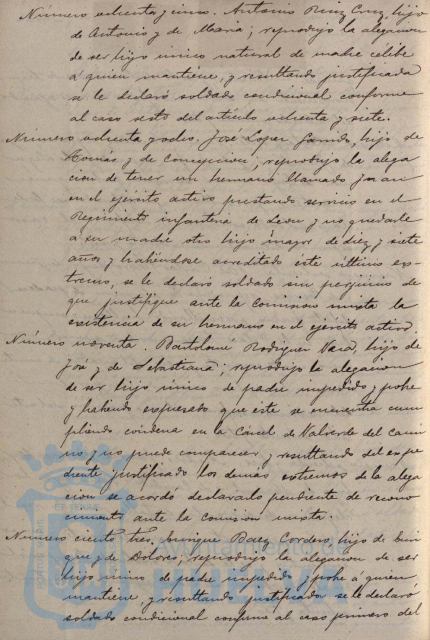 Número ochenta y cinco. Antonio Ruiz Cruz, hijo
de Antonio y de Maria; reprodujo la alegacion
de ser hijo único natural de madre célibe
á quien mantiene, y resultando justificada
se le declaró soldado condicional conforme
al caso sesto del artículo ochenta y siete.
Número ochenta y ocho. José Lopez Garrido, hijo de
Tomas y de Concepcion, reprodujo la alega
cion de tener un hermano llamado Juan
en el ejército activo prestando servicio en el
Regimiento infanteria de Leon y no quedarle
á su madre otro hijo mayor de diez y siete
años y habiéndose acreditado este último es-
tremo, se le declaró soldado sin perjuicio de
que justifique ante la Comision mixta la
existencia de su hermano en el ejército activo.
Número noventa. Bartolomé Rodriguez Vara, hijo de
José y de Sebastiana; reprodujo la alegacion
de ser hijo único de padre impedido y pobre
y habiendo espresado que este se encuentra cum
pliendo condena en la Carcel de Valverde del Cami
no y no puede comparecer y resultando del espe
diente justificado los demas estremos de la alega
cion se acordó declararlo pendiente de recono
cimiento ante la Comision mixta.
Número ciento tres. Enrique Baez Cordero, hijo de Enri
que y de Dolores, reprodujo la alegacion de ser
hijo único de padre impedido y pobre á quien
mantiene, y resultando justificado se le declaró
soldado condicional conforme al caso primero del